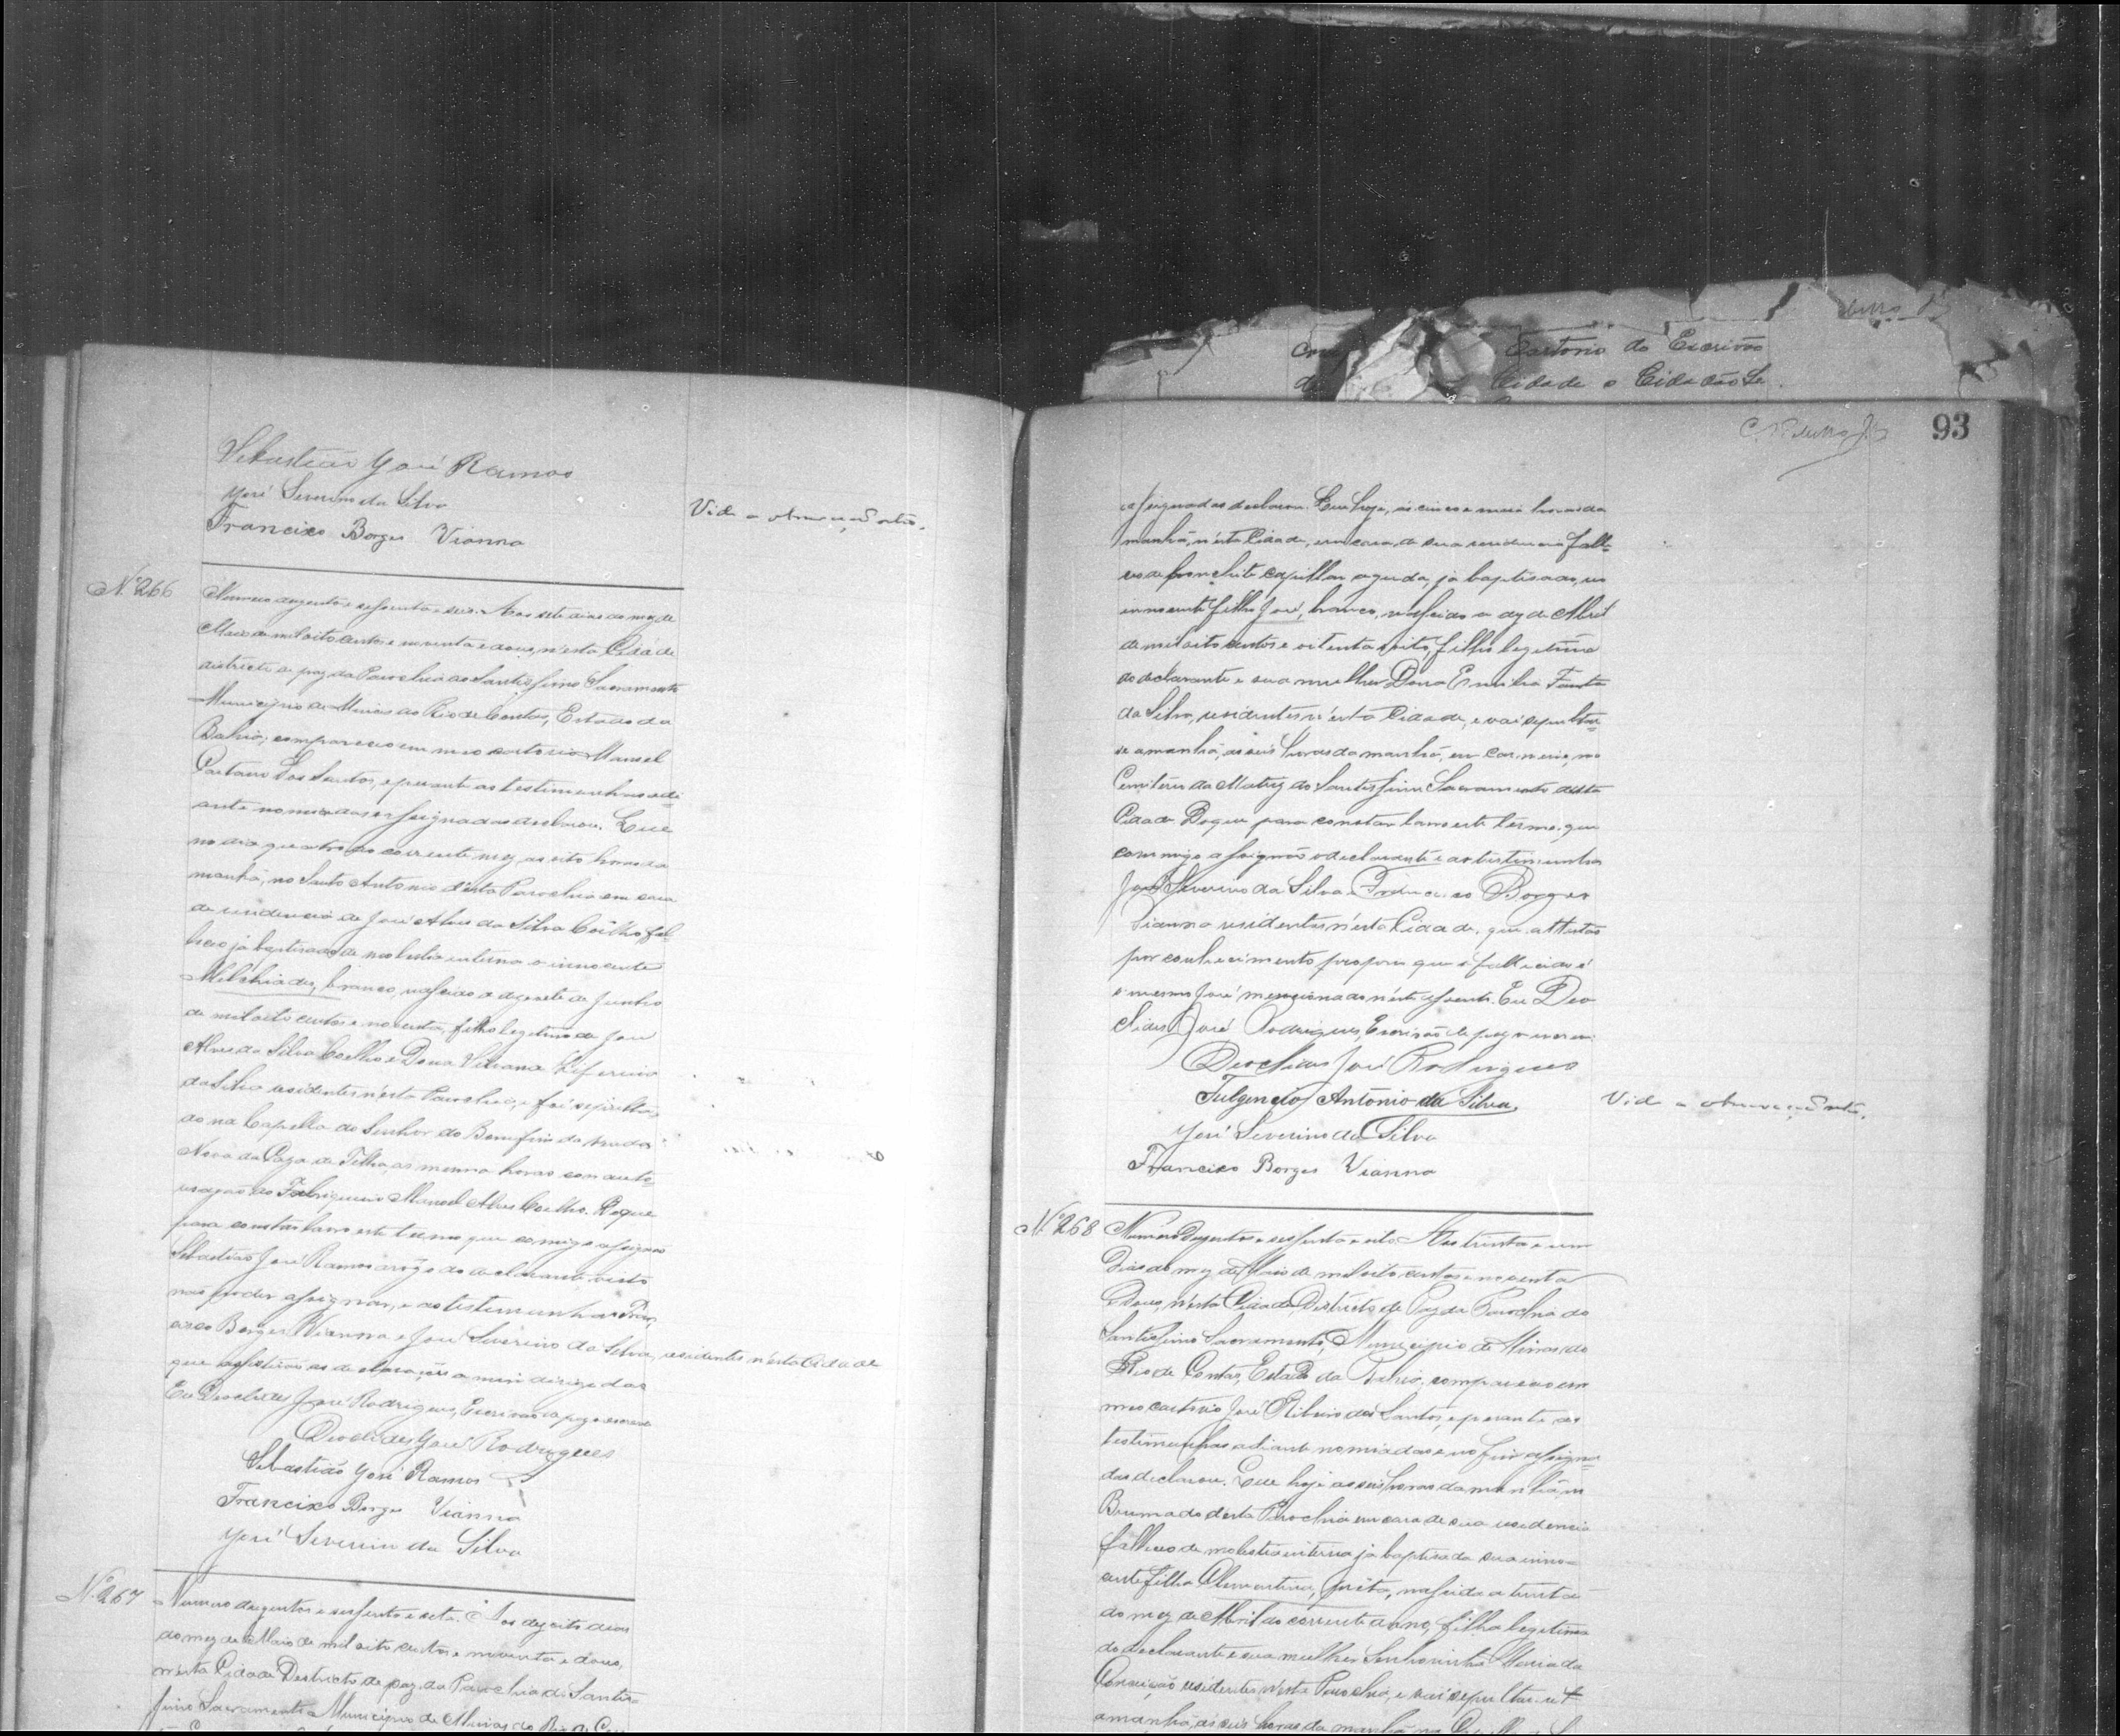 Sebastião José Ramos
José Severino da Silva
Francisco Borges Vianna
Vide a observação retro.
Nº 266
Numero duzentos e sessenta e seis. Aos sete dias do mez de
Maio de mil oito centos e noventa e dous, n'esta Cidade
districto de paz da Parochia do Santissimo Sacramento
Municipio de Minas do Rio de Contas, Estado da
Bahia, compareceo em meo cartorio Manoel
Caetano dos Santos, e perante as testimunhas adi-
ante nomeadas e assignadas declarou. Que
no dia quatro do corrente mez, as oito horas da
manhã, no Santo Antonio d'esta Parochia em casa
de residencia de José Alves da Silva Coêlho fal-
leceo já baptisado de molestia interna o innocente
Milchiades, branco, nascido a dezesete de Junho
de mil oito centos e noventa, filho legitimo de José
Alves da Silva Coelho e Dona Viliana Zeferina
da Silva residentes n'esta Parochia, e foi sepulta-
do na Capella do Senhor do Bomfim da
Nova da Casa de Telha, as mesmas horas com auto-
risação do Fabriqueiro Manoel Alves Coelho. Do que
para constar lavro este termo que comigo assignão
Sebastião José Ramos a rôgo do declarante, visto
não poder assignar, e as testimunhas Fran-
cisco Borges Vianna e José Severino da Silva, residentes n'esta Cidade
que assistirão as declarações a mim dirigidas
Eu Deoclides José Rodrigues, Escrivão de paz o escrevi
Deoclides José Rodrigues
Sebastião José Ramos
Francisco Borges Vianna
José Severino da Silva
Nº 267
Numero duzentos e sessenta e sete. Aos dezoito dias
do mez de Maio de mil oito centos e noventa e dous,
n'esta Cidade Destricto de paz da Parochia do Santis-
simo Sacramento Municipio de Minas do Rio de Con
Cartorio do Escrivão
Cidade o Cidadão Se
93
assignadas declarou. Que hoje, ás cinco e meia horas da
manhã, n'esta Cidade, em casa de sua residencia falle-
ceo de bronchite capillar aguda, já baptisado, seo
innocente filho José, branco, nascido a dez de Abril
de mil oito centos e oitenta e oito, filho legitimo
do declarante e sua mulher Dona Emilia Fausta
da Silva, residentes n'esta Cidade, e vai sepultar-
se amanhã, ás seis horas da manhã, em carneiro, no
Cemiterio da Matriz do Santissimo Sacramento desta
Cidade Do que para constar lavro este termo, que
commigo assignão o declarante e as testimunhas
José Severino da Silva e Francisco Borges
Vianna residentes n'esta Cidade, que attestão
por conhecimento proprio que o fallecido é
o mesmo José mencionado n'este assento. Eu Deo
clides José Rodrigues, Escrivão de paz o escrevi
Deoclides José Rodrigues
Fulgencio Antônio da Silva
José Severino da Silva
Francisco Borges Vianna
Vide a observação retro.
Nº 268
Numero Duzentos e sessenta e oito Aos trinta e um
Dias do mez de Maio de mil oito centos e noventa
e Dous, n'esta Cidade, Districto de Paz da Parochia do
Santissimo Sacramento, Municipio de Minas do
Rio de Contas, Estado da Bahia, compareceo em
meo cartorio José Ribeiro dos Santos, e perante as
testimunhas adiante nomiadas e no fim assigna-
das declarou. Que hoje as seis horas da manhã, no
Brumado desta Parochia em casa de sua residencia
falleceo de molestia interna já baptisada sua inno-
cente filha Clementina, prêta, nascida a trinta
do mez de Abril do corrente anno, filha legitima
do declarante e sua mulher Senhorinha Maria da
Conceição residentes n'esta Parochia, e vai sepultar-se
amanhã, ás seis horas da manhã na